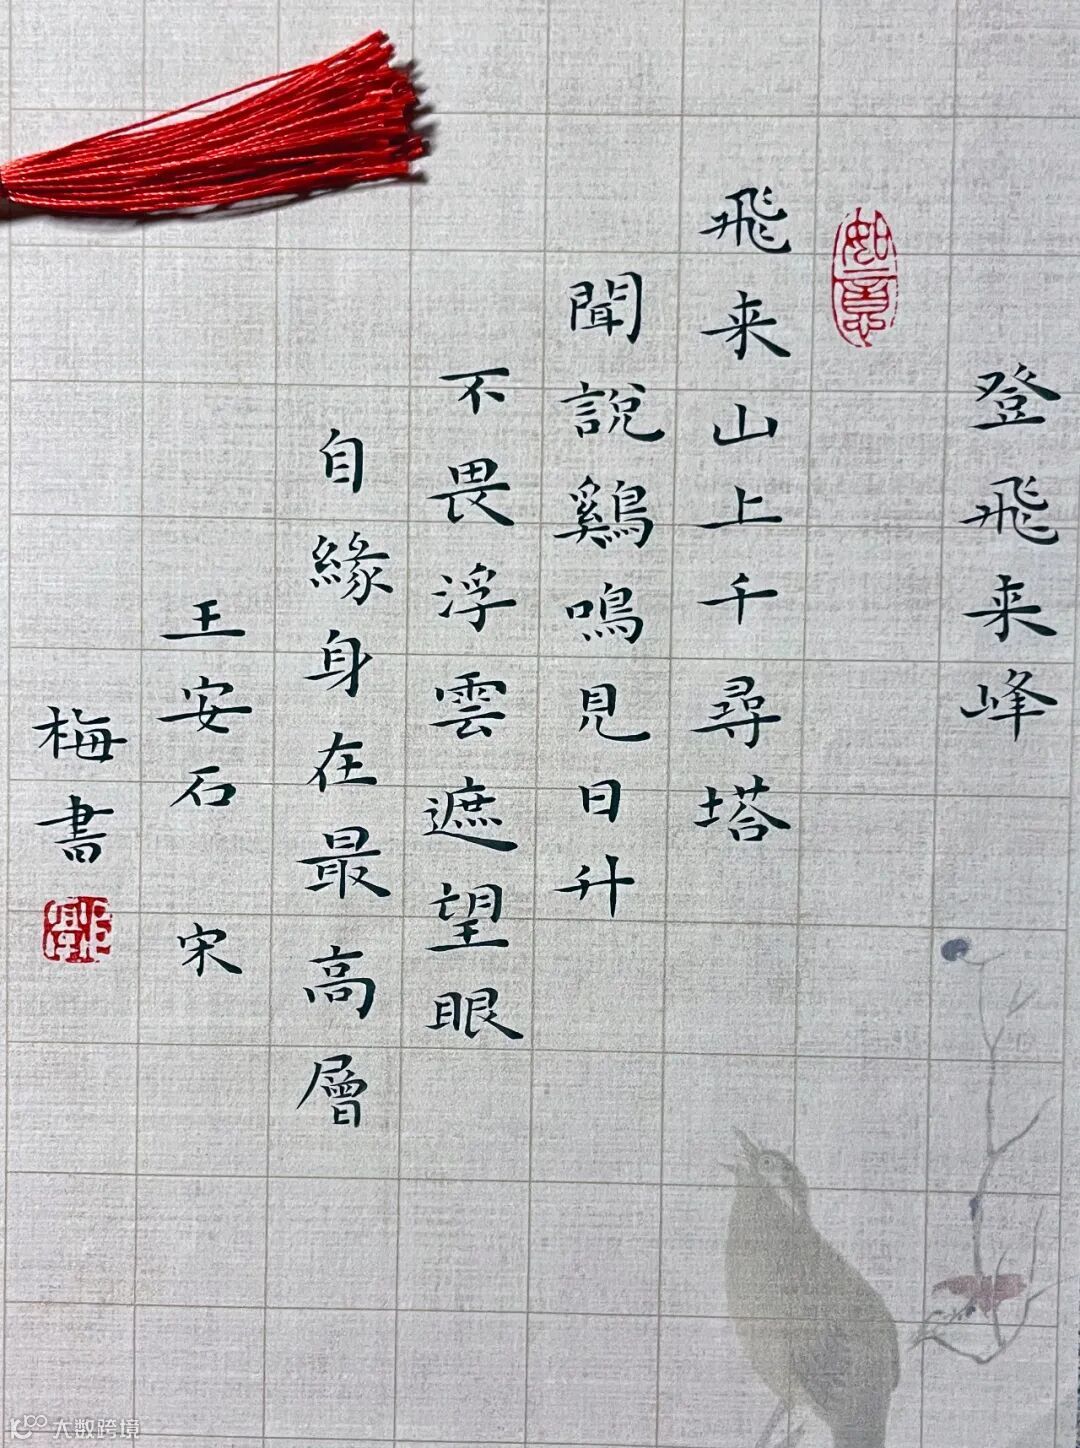 登飛来峰
如意
飛来山上千尋塔
聞説鷄鳴見日升
不畏浮雲遮望眼
自緣身在最高層
王安石 宋
梅書
大数跨境